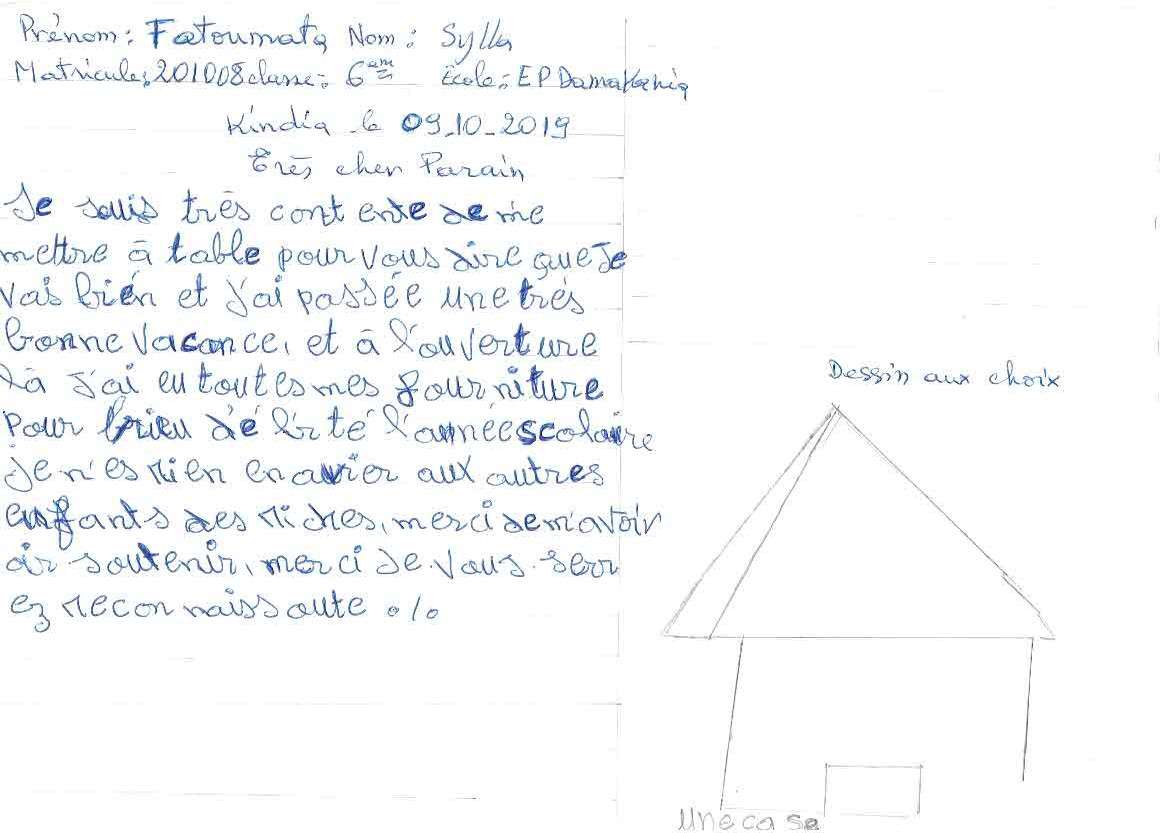 Prénom: Fatoumata Nom: Sylla
Matricule: 201008 classe: 6em Ecole: EP Damakania
Kindia le 09-10-2019
Très cher Parain
Je suis très cont ente de me
mettre à table pour vous dire que Je
vais bien et j'ai passée une très
bonne vacance, et à l'ouverture
là j'ai eu toutes mes fourniture
pour brieu dé bité l'annéescolaire
je n'es rien en avier aux autres
enfants des riches, merci de m'avoir
oir soutenir, merci Je vous serr
ez reconnaissoute %
Dessin aux choix
Une case